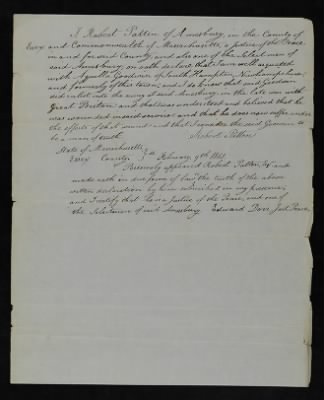 I Robert Patten of Amesbury, in the County of
Essex and Commonwealth of Massachusetts, a Justice of the Peace
in and for said County, and also one of the Selectmen of
said Amesbury, on oath declare that I am well acquainted
with Goodwin of South Hampton, New hampshire
and formerly of this town; and I do know that said Goodwin
did enlist into the army at said Amesbury, in the late war with
Great Britain and that I was understood and believed that he
was wounded in said service and that he does now suffer under
the effects of that wound and that I consider the said Goodwin to
be a man of truth
Robert Patten
State of Massachusetts
Essex County, Ss February 9th
Personally appeared Robert Patten, Esq and
made oath in due form of law, the truth of the above
written declaration by him subscribed in my presence;
and I certify that he is a Justice of the Peace, and one of
the Selectmen of said Amesbury Edward Just. Peace.